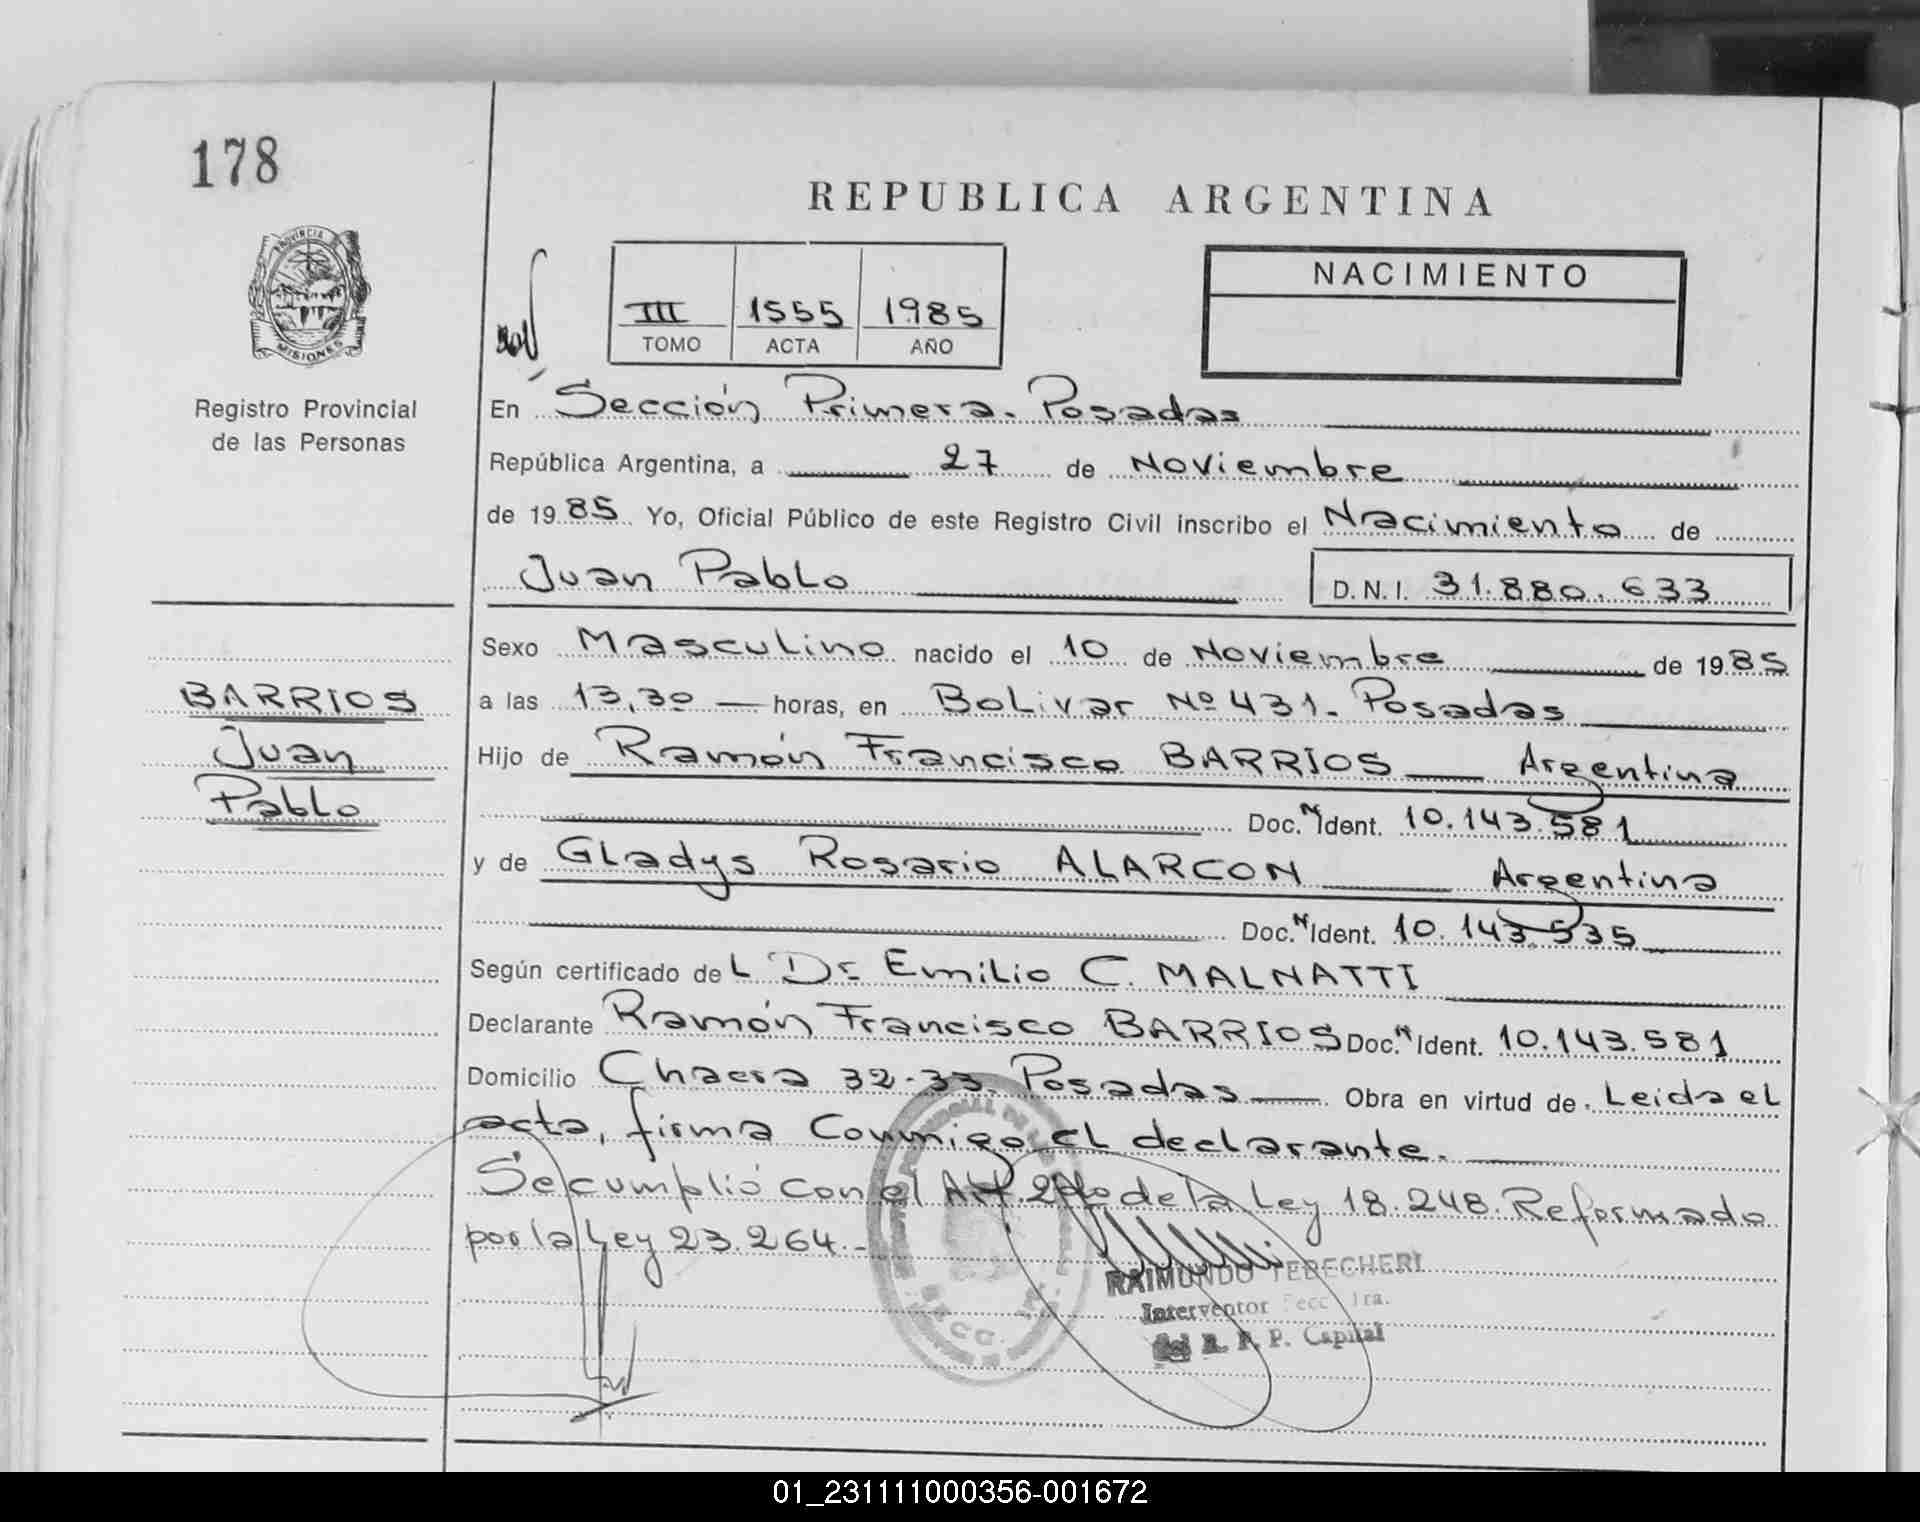 178
REPUBLICA ARGENTINA
PROVINCIA DE
MISIONES
Registro Provincial
de las Personas
III 1555 1985
TOMO ACTA AÑO
NACIMIENTO
En Sección Primera. Posadas
República Argentina, a 27 de Noviembre
de 1985 Yo, Oficial Público de este Registro Civil inscribo el Nacimiento de
Juan Pablo D.N.I. 31.880.633
BARRIOS
Juan
Pablo
Sexo Masculino nacido el 10 de Noviembre de 1985
a las 13,30 horas, en Bolivar Nº 431. Posadas
Hijo de Ramón Francisco BARRIOS Argentina
Doc. N Ident. 10.143.581
y de Gladys Rosario ALARCON Argentina
Doc. N Ident. 10.143.535
Según certificado del Dr. Emilio C. MALNATTI
Declarante Ramón Francisco BARRIOS Doc. N Ident. 10.143.581
Domicilio Chacra 32-33. Posadas Obra en virtud de. Leida el
acta, firma Conmigo el declarante.
Se cumplió con el Art. 2do de la Ley 18.248. Reformado
por la Ley 23.264.-
RAIMUNDO TEBECHERI
Interventor Secc. 1ra.
del R. P. P. Capital
01_231111000356-001672